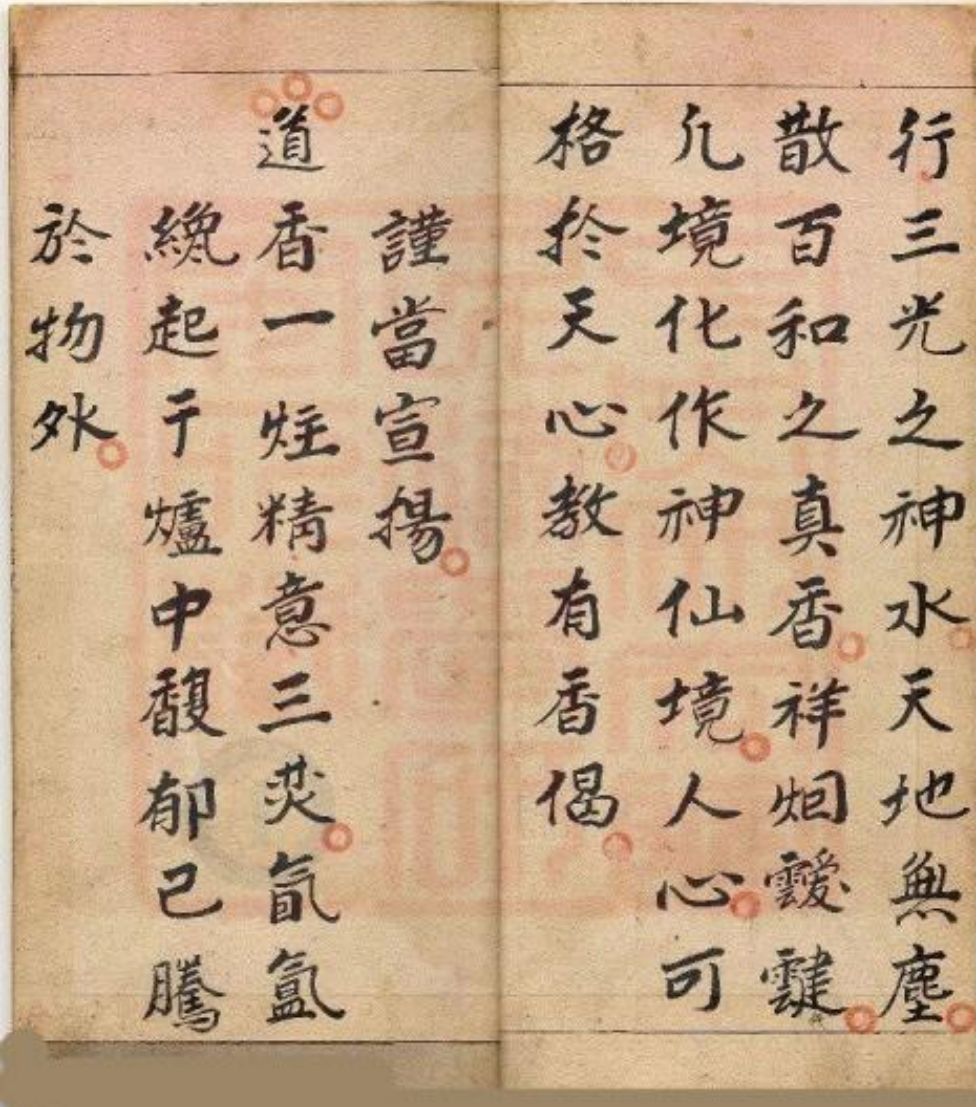 行三光之神水天地無塵
散百和之真香祥烟靉靆
凡境化作神仙境人心可
格扵天心教有香偈
謹當宣揚
道香一炷精意三焚氤氳
纔起于爐中馥郁已騰
於物外